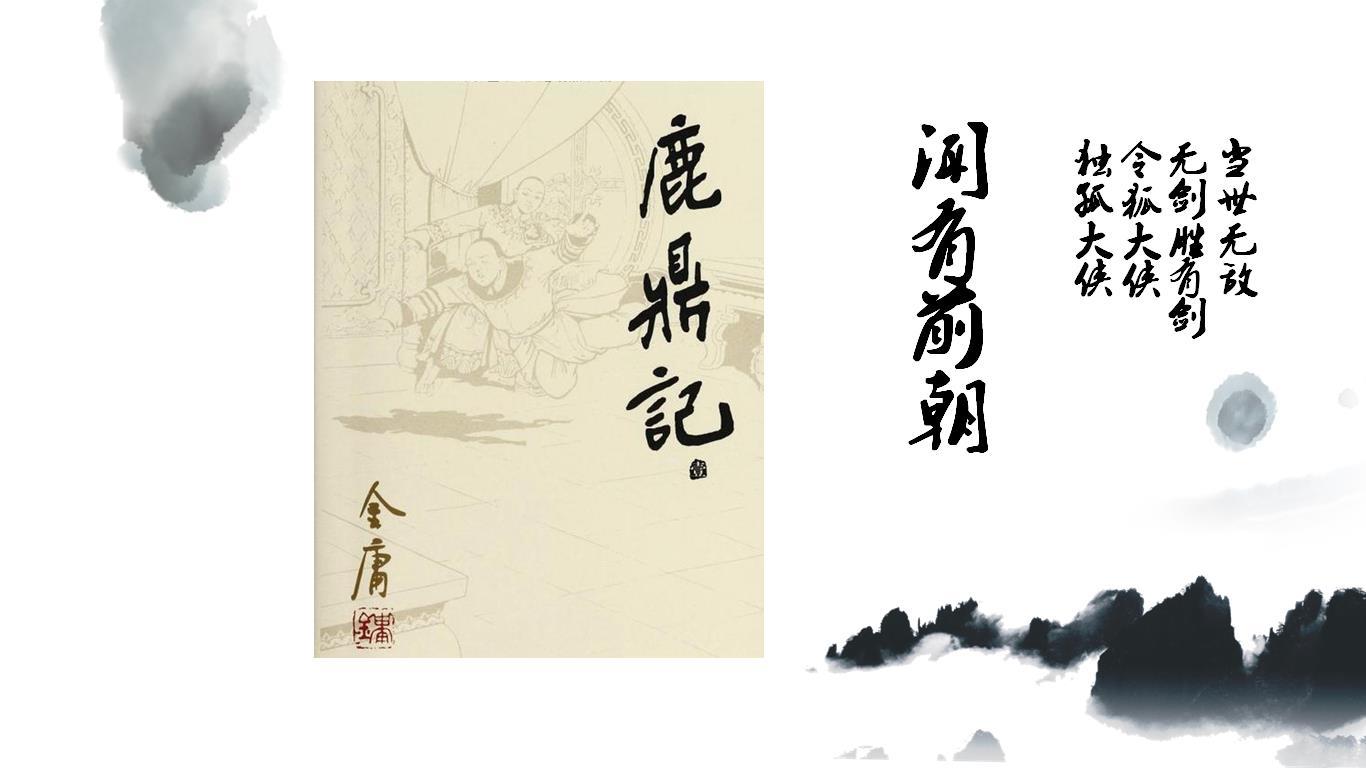 鹿鼎記
金庸
闻有前朝
当世无敌
无剑胜有剑
令狐大侠
独孤大侠